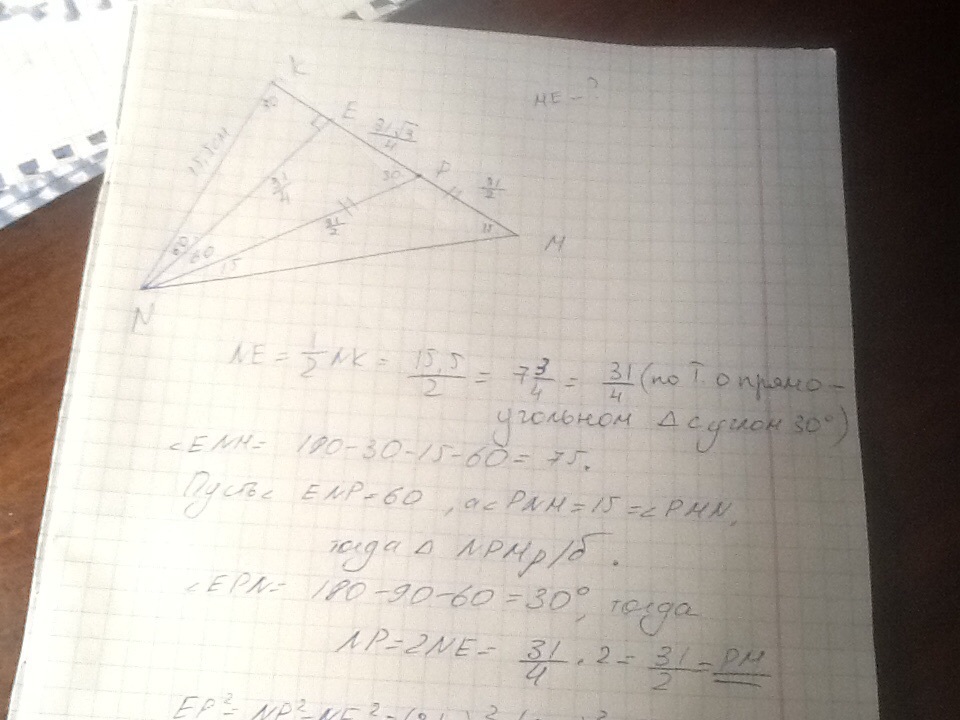 ME - ?
K
30
E
31√3/4
15,5 см
31/4
30
P
31/2
60
60
31/2
15
15
M
N
NE = 1/2 NK = 15,5/2 = 7 3/4 = 31/4 (по Т. о прямо-
угольном Δ с углом 30°)
∠ENM = 180-30-15-60 = 75.
Пусть ∠ENP=60, а ∠PNM=15=∠PMN,
тогда Δ NPM р/б.
∠EPN= 180-90-60=30°, тогда
NP=2NE= 31/4 · 2 = 31/2 = PM
EP²= NP²-NE²=